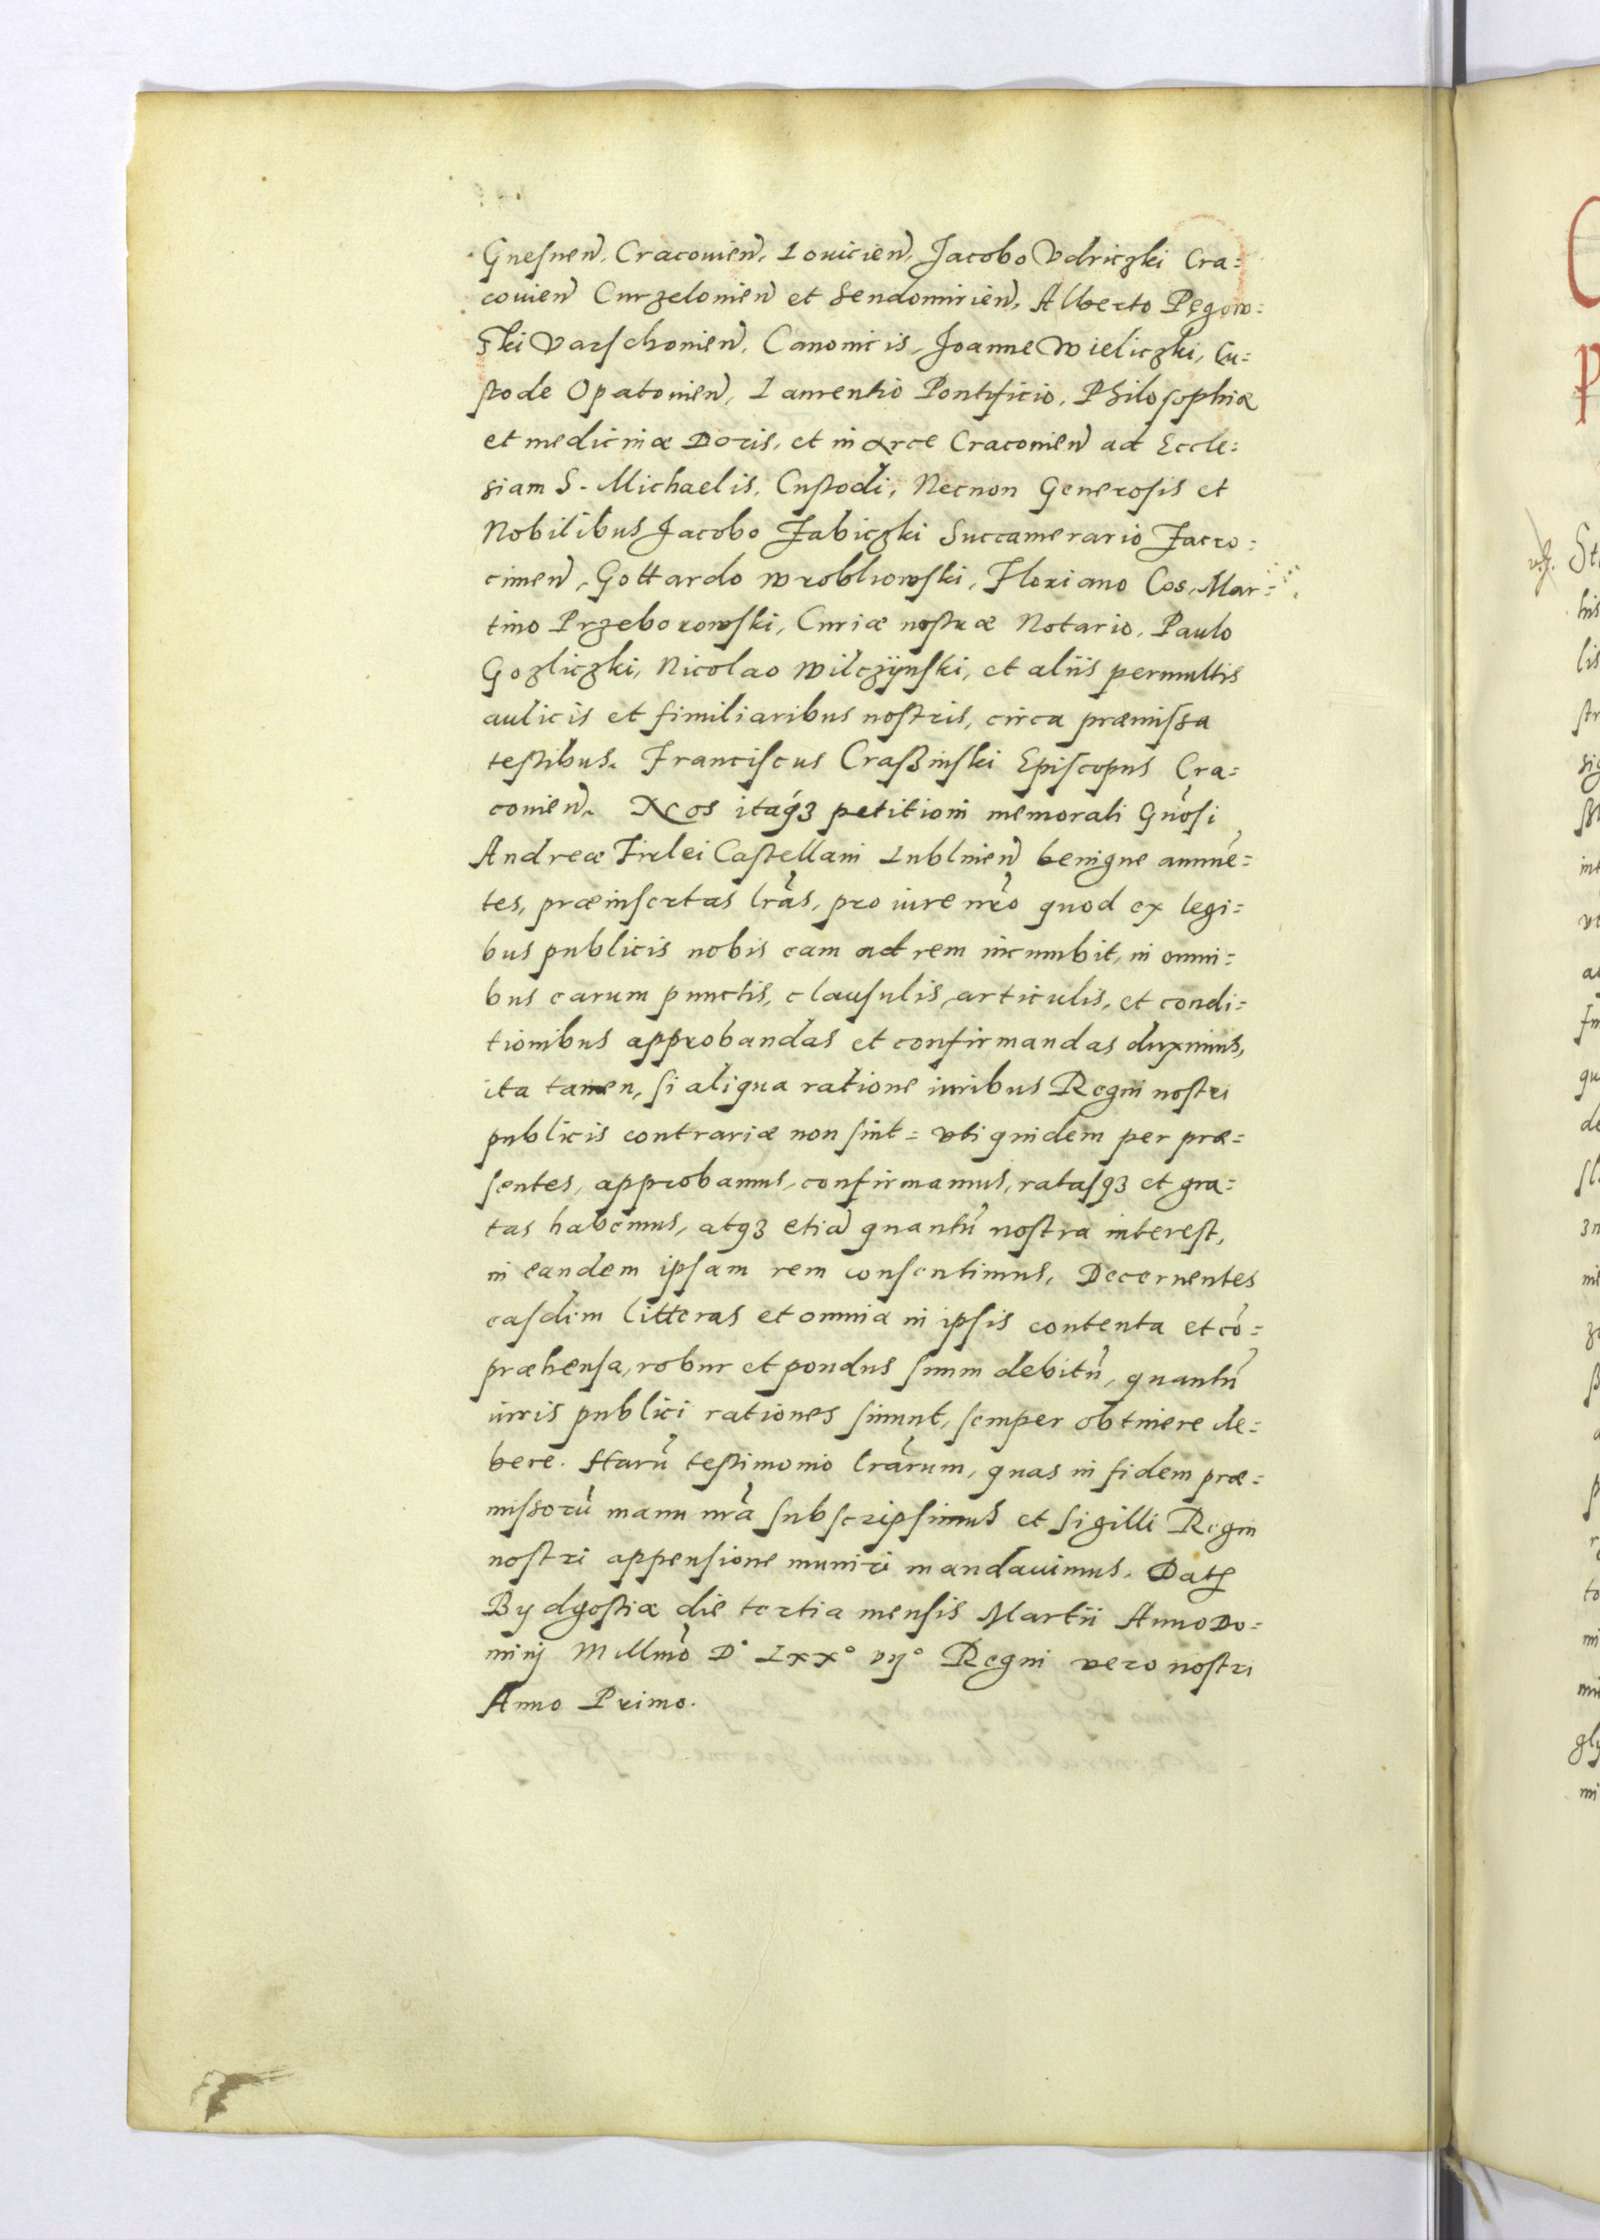 Gnesnen̄. Cracouien̄. Louicien̄. Jacobo Vdriczki Cra=
couien̄ Curzelouien̄ et Sendomirien̄. Alberto Pęgow=
ski Varschouien̄. Canonicis, Joanne Wieliczki, Cu=
stode Opatouien̄, Laurentio Pontificio, Philosophiæ
et medicinæ Doris, et in arce Cracouien̄ ad Eccle=
siam S. Michaelis. Custodi, Necnon Generosis et
Nobilibus Jacobo Zabiczki Succamerario Zacro=
cimen̄, Gottardo Wroblowski, Floriano Cos, Mar=
tino Przeborowski, Curiæ nostræ Notario, Paulo
Gozliczki, Nicolao Wilczÿnski, et aliis permultis
aulicis et fimiliaribus nostris, circa præmissa
testibus. Franciscus Craßinski Episcopus Cra=
couien̄. Nos itaq́ꝫ petitioni memorati Gn̄osi
Andreæ Firlei Castellani Lublinen̄ benigne annuē=
tes, præinsertas lr̄as, pro iure nr̄o quod ex legi=
bus publicis nobis eam ad rem incumbit, in omni=
bus earum punctis, clausulis, articulis, et condi=
tionibus approbandas et confirmandas duximus,
ita tamen, si aliqua ratione iuribus Regni nostri
publicis contrariæ non sint = vti quidem per præ=
sentes, approbamus, confirmamus, ratasqꝫ et gra=
tas habemus, atqꝫ etiā quantū nostra interest,
in eandem ipsam rem consentimus, Decernentes
easdem litteras et omnia in ipsis contenta et cō=
præhensa, robur et pondus suum debitū, quantū
iuris publici rationes sinunt, semper obtinere de=
bere. Harū testimonio lr̄arum, quas in fidem præ=
missorū manu nr̄a subscripsimus et sigilli Regni
nostri appensione muniri mandauimus. Datꝭ
Bydgostiæ die tertia mensis Martii Anno Do=
minij Millmō D° Lxx° vij° Regni vero nostri
Anno Primo.